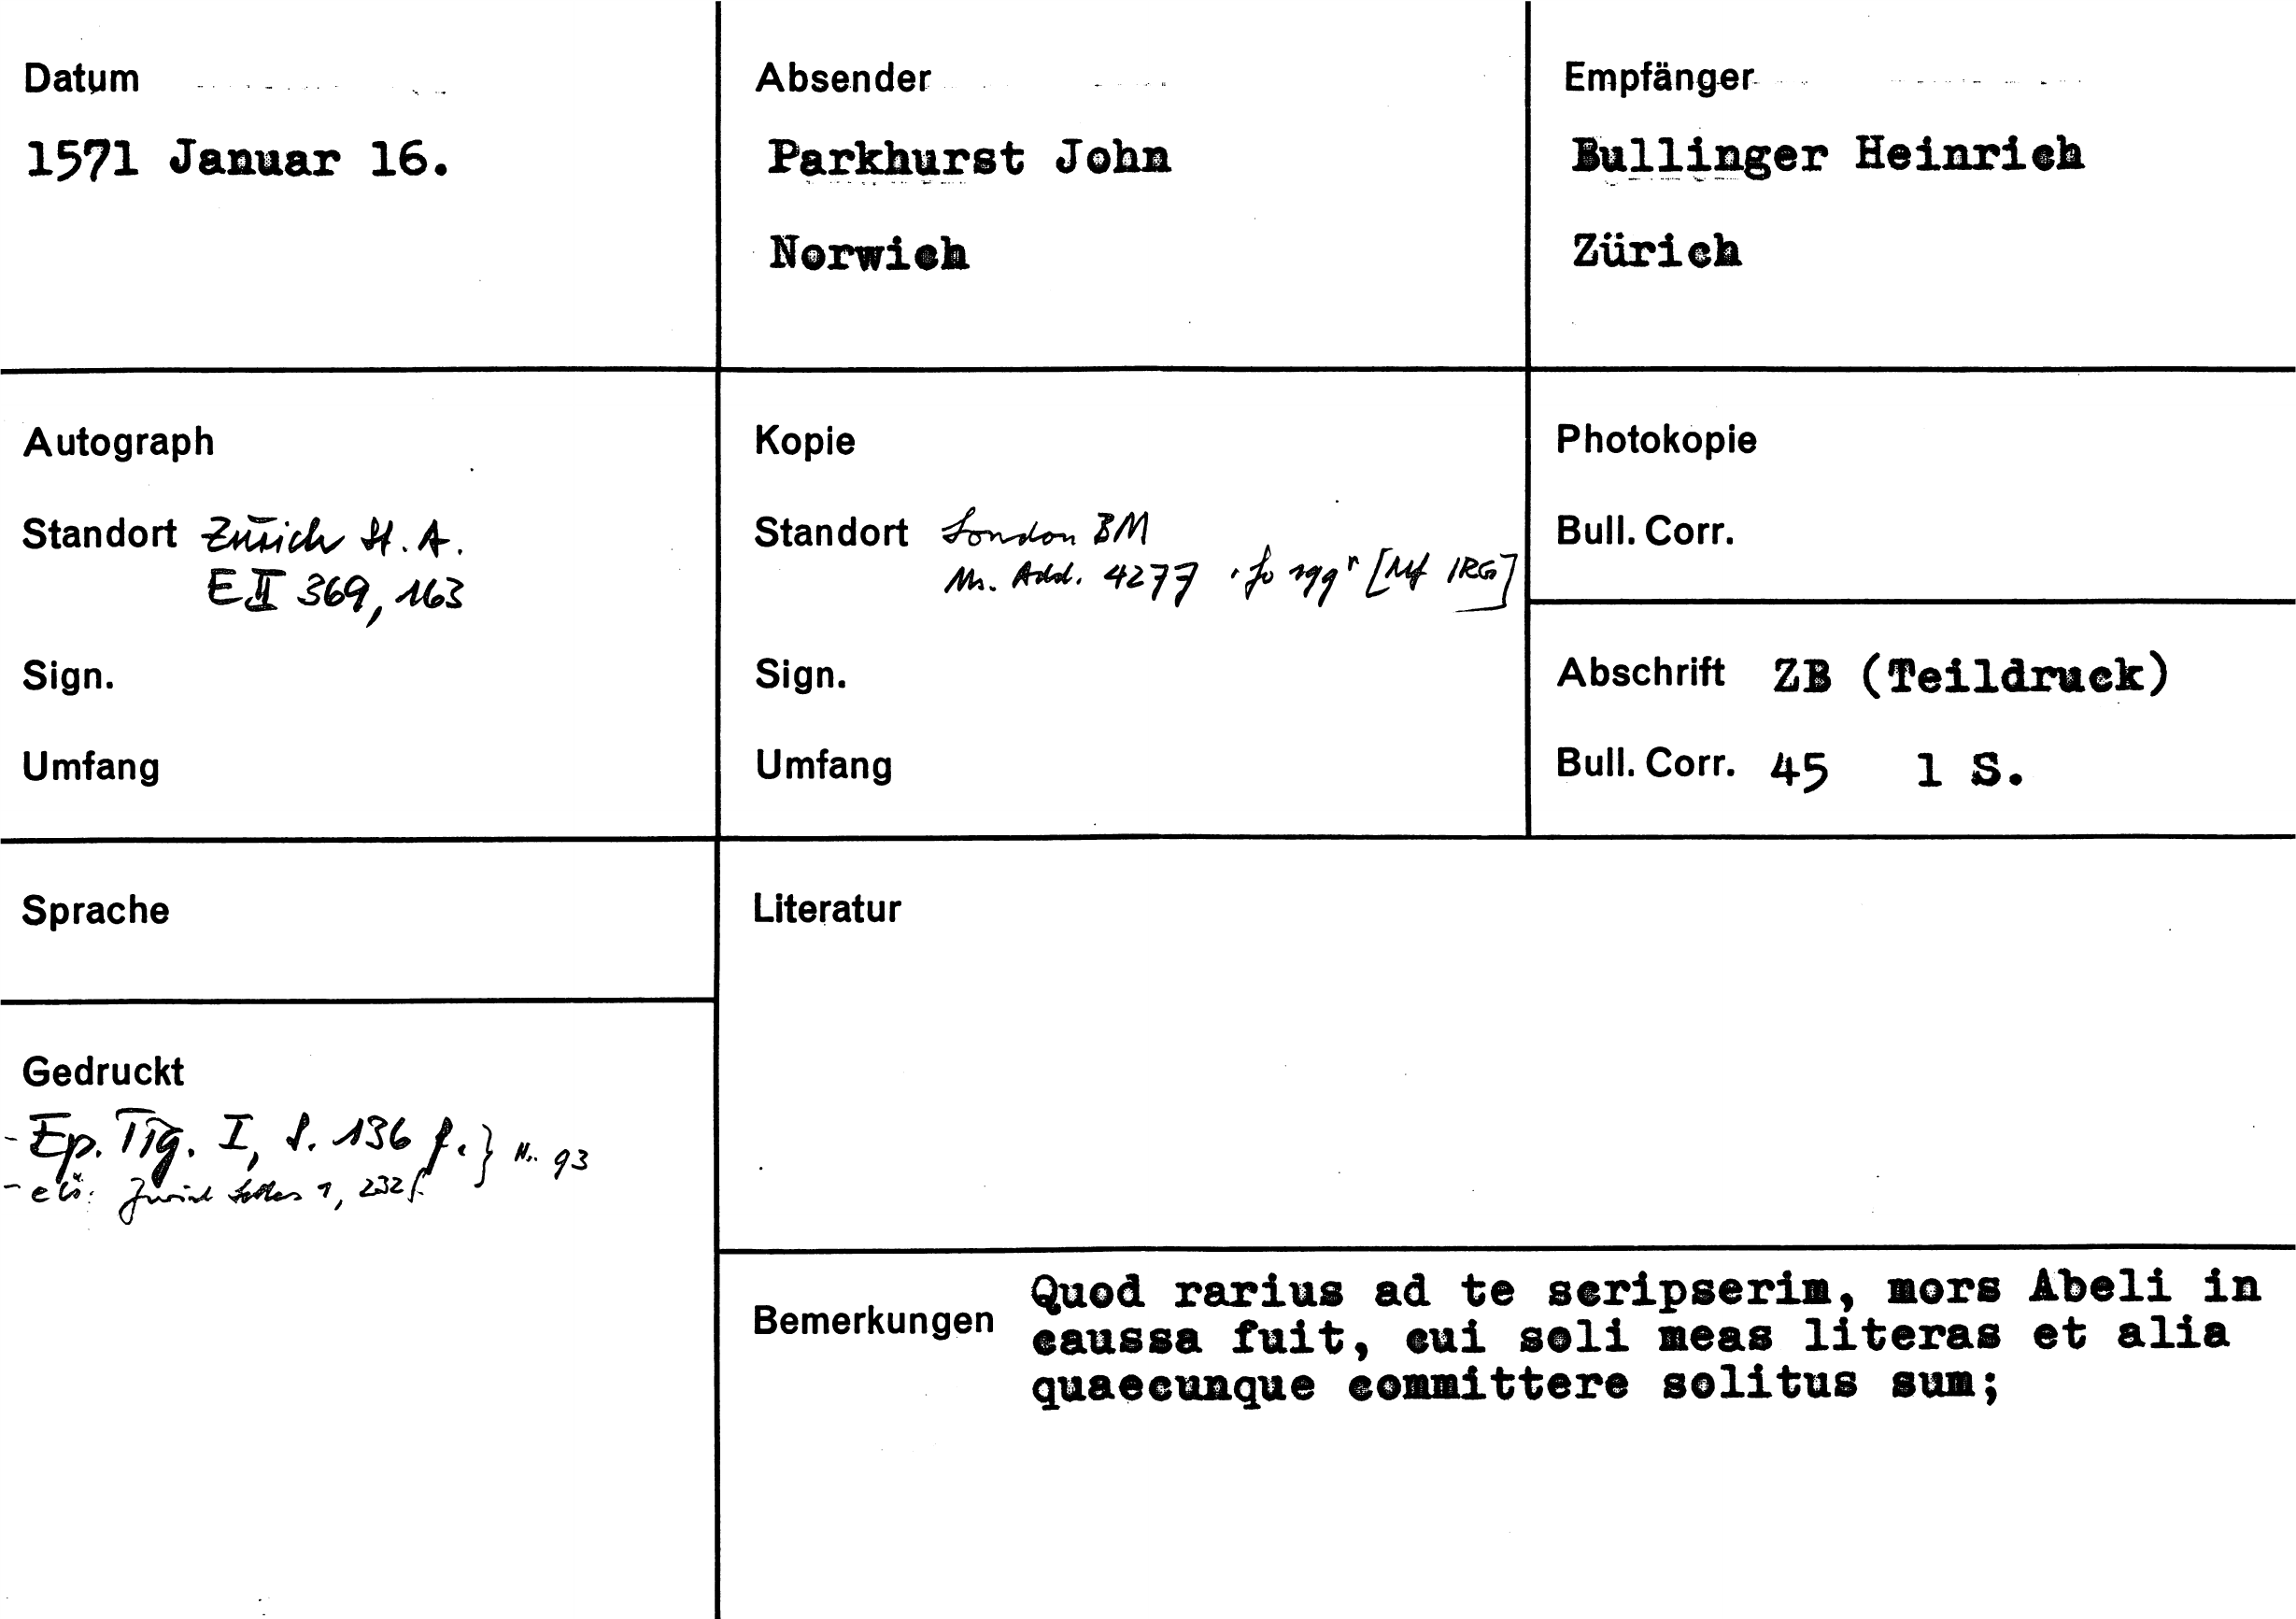 Datum
1571 Januar 16.
Absender
Parkhurst John
Norwich
Empfänger
Bullinger Heinrich
Zürich
Autograph
Standort Zürich St. A.
E II 369, 163
Sign.
Umfang
Kopie
Standort London BM
Ms. Add. 4277 , fo 199r [Mf IRG]
Sign.
Umfang
Photokopie
Bull. Corr.
Abschrift ZB (Teildruck)
Bull. Corr. 45 1 S.
Sprache
Literatur
Gedruckt
- Ep. Tig. I, S. 136 f. } Nr. 93
- Zurich Letters 1, 232 f.
Bemerkungen Quod rarius ad te scripserim, mors Abeli in
caussa fuit, cui soli meas literas et alia
quaecunque committere solitus sum;